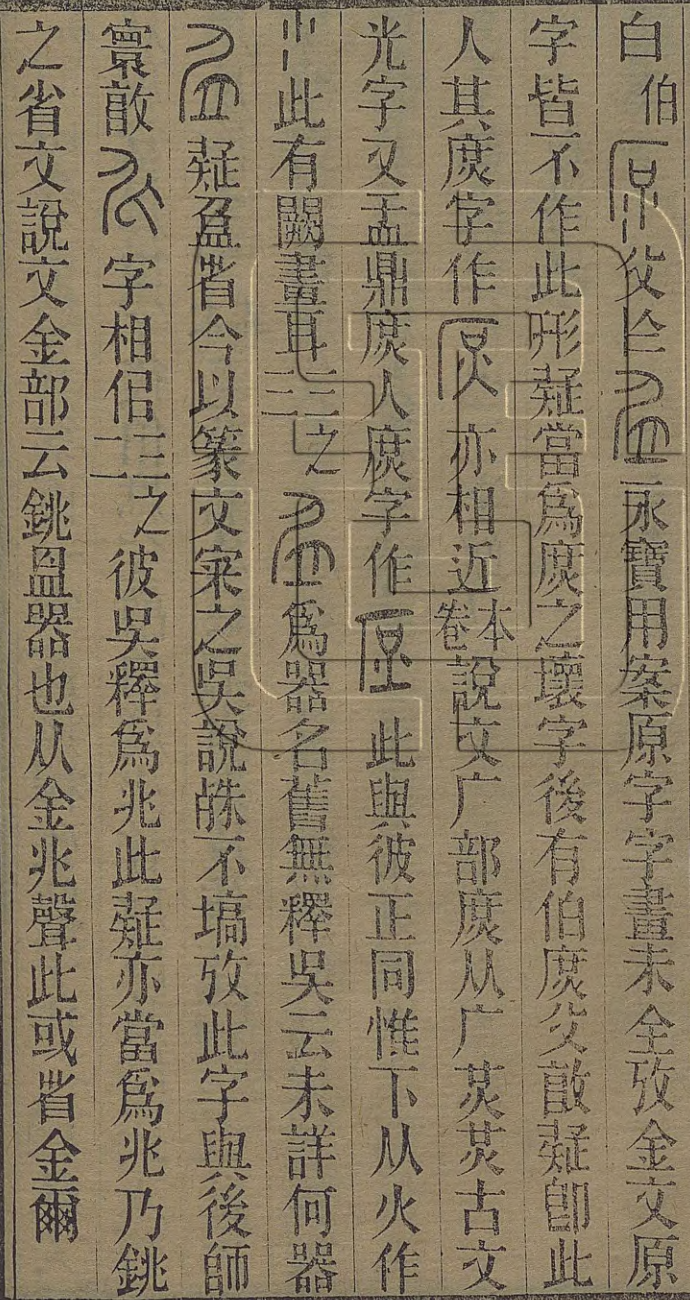 白伯父乍永寶用案原字字畫未全攷金文原
字皆不作此形疑當爲庻之壞字後有伯庻父𣪘疑卽此
人其庻字作亦相近本卷說文广部庻从广炗炗古文
光字又盂鼎庻人庻字作此與彼正同惟下从火作
此有闕畫耳三之三爲器名舊無釋吳云未詳何器
疑盈省今以篆文宷之吳說皆不塙攷此字與後師
寰𣪘字相佀三之二彼吳釋爲兆此疑亦當爲兆乃銚
之省文說文金部云銚𥁕器也从金兆聲此或省金爾